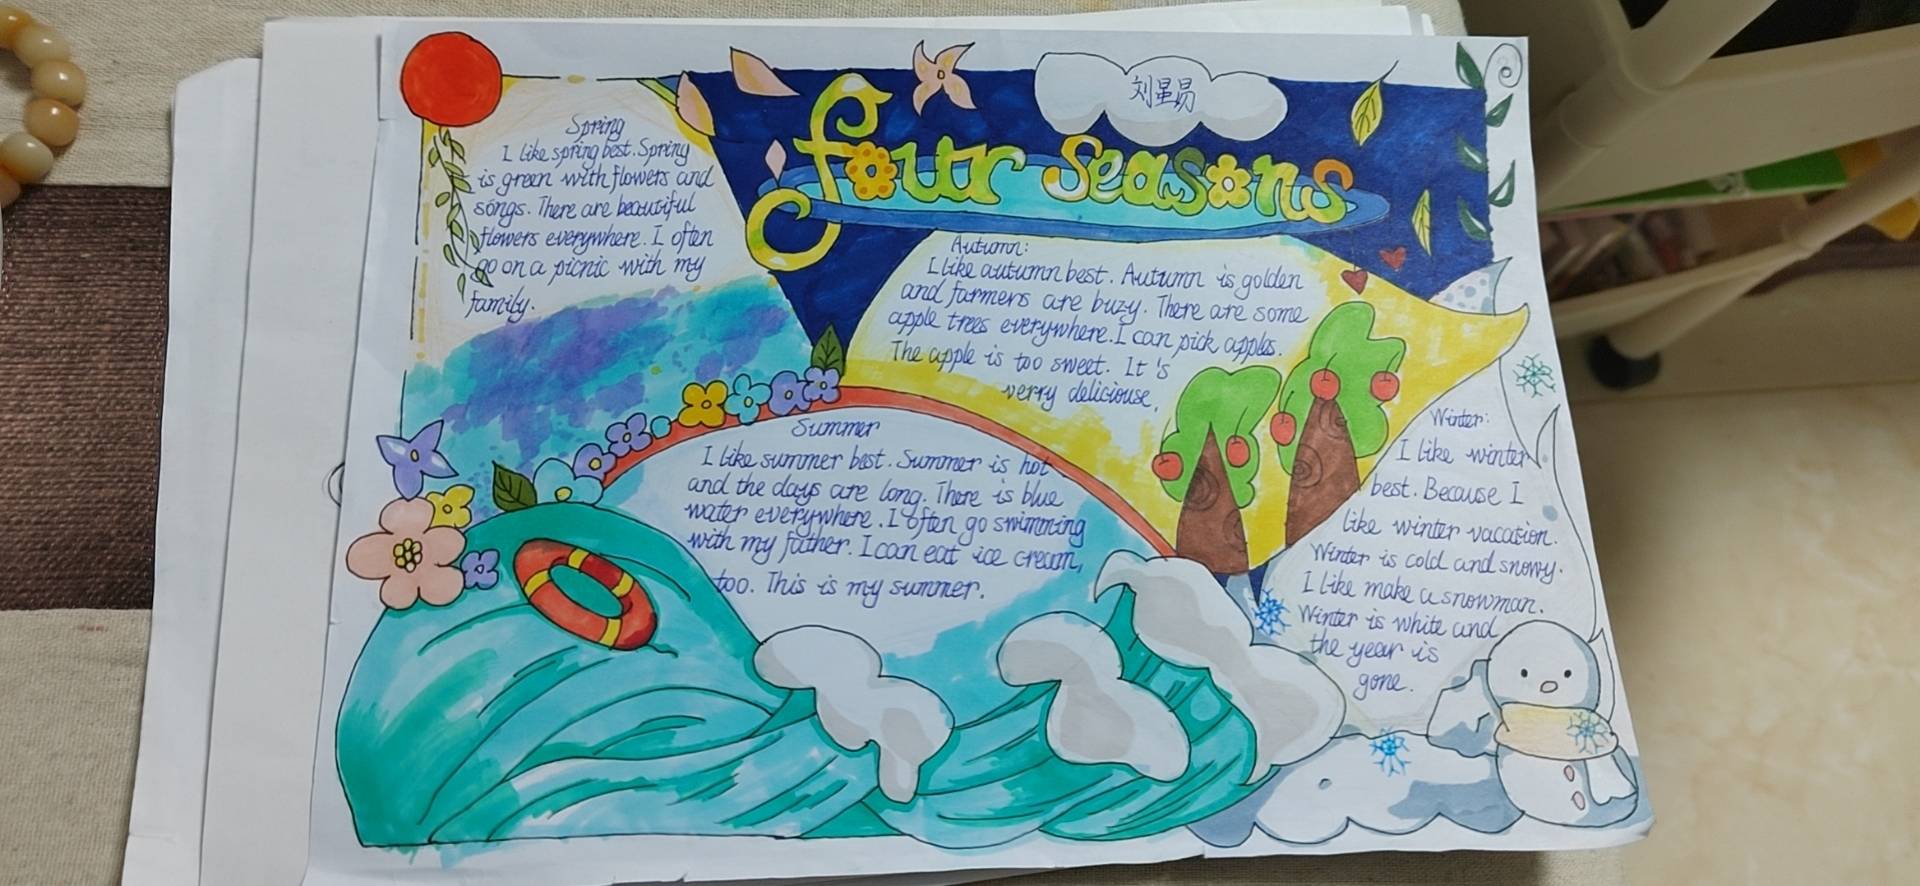 刘星易
four seasons
Spring
I like spring best. Spring
is green with flowers and
songs. There are beautiful
flowers everywhere. I often
go on a picnic with my
family.
Autumn:
I like autumn best. Autumn is golden
and farmers are buzy. There are some
apple trees everywhere. I can pick apples.
The apple is too sweet. It's
verry deliciouse.
Summer
I like summer best. Summer is hot
and the days are long. There is blue
water everywhere. I often go swimming
with my father. I can eat ice cream,
too. This is my summer.
Winter:
I like winter
best. Because I
like winter vacation.
Winter is cold and snowy.
I like make a snowman.
Winter is white and
the year is
gone.